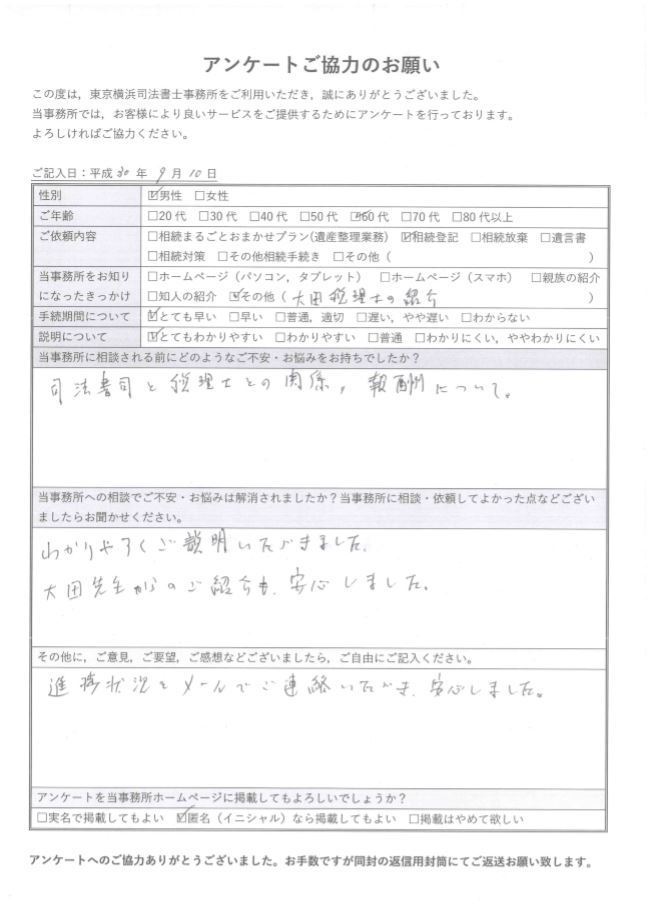 アンケートご協力のお願い
この度は，東京横浜司法書士事務所をご利用いただき，誠にありがとうございました。
当事務所では，お客様により良いサービスをご提供するためにアンケートを行っております。
よろしければご協力ください。
ご記入日：平成 30 年 9 月 10 日
性別 ☑男性 □女性
ご年齢 □20 代 □30 代 □40 代 □50 代 ☑60 代 □70 代 □80 代以上
ご依頼内容 □相続まるごとおまかせプラン(遺産整理業務) ☑相続登記 □相続放棄 □遺言書
□相続対策 □その他相続手続き □その他（ ）
当事務所をお知り □ホームページ（パソコン，タブレット） □ホームページ（スマホ） □親族の紹介
になったきっかけ □知人の紹介 ☑その他（大田税理士の紹介 ）
手続期間について ☑とても早い □早い □普通，適切 □遅い，やや遅い □わからない
説明について ☑とてもわかりやすい □わかりやすい □普通 □わかりにくい，ややわかりにくい
当事務所に相談される前にどのようなご不安・お悩みをお持ちでしたか？
司法書司と税理士との関係，報酬について。
当事務所への相談でご不安・お悩みは解消されましたか？当事務所に相談・依頼してよかった点などござい
ましたらお聞かせください。
わかりやすくご説明いただきました。
大田先生からのご紹介も、安心しました。
その他に，ご意見，ご要望，ご感想などございましたら，ご自由にご記入ください。
進捗状況をメールでご連絡いただき、安心しました。
アンケートを当事務所ホームページに掲載してもよろしいでしょうか？
□実名で掲載してもよい ☑匿名（イニシャル）なら掲載してもよい □掲載はやめて欲しい
アンケートへのご協力ありがとうございました。お手数ですが同封の返信用封筒にてご返送お願い致します。